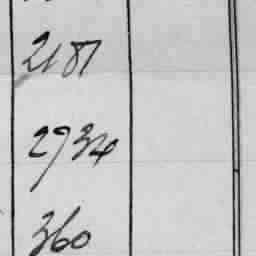 2187
2934
360